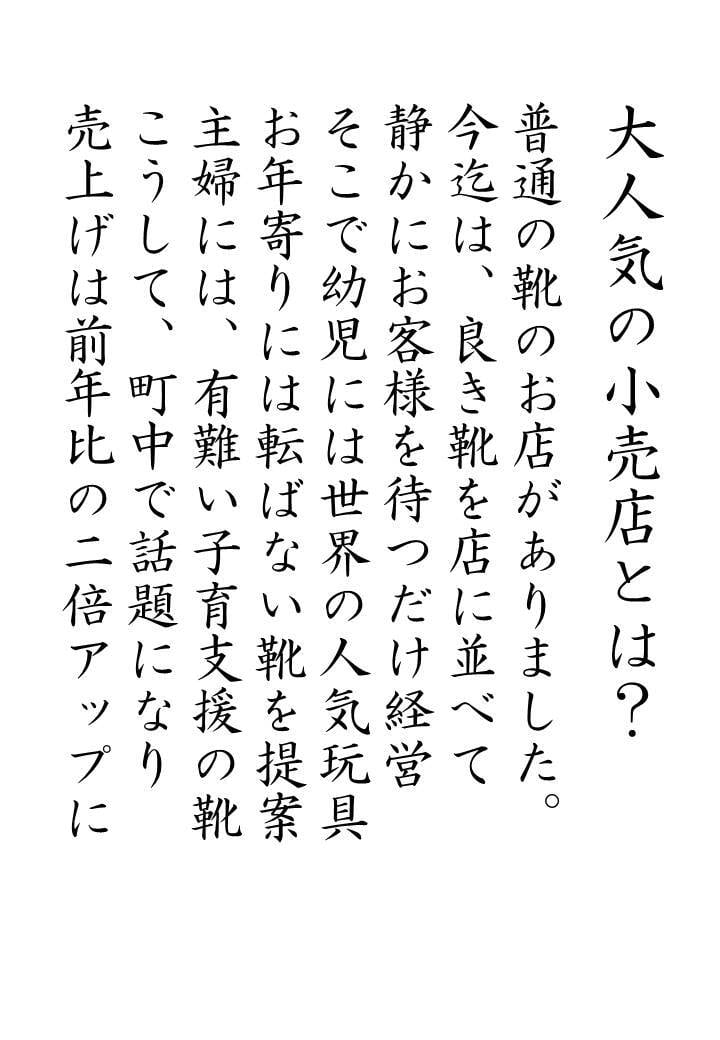 大人気の小売店とは？
普通の靴のお店がありました。
今迄は、良き靴を店に並べて
静かにお客様を待つだけ経営
そこで幼児には世界の人気玩具
お年寄りには転ばない靴を提案
主婦には、有難い子育支援の靴
こうして、町中で話題になり
売上げは前年比の二倍アップに